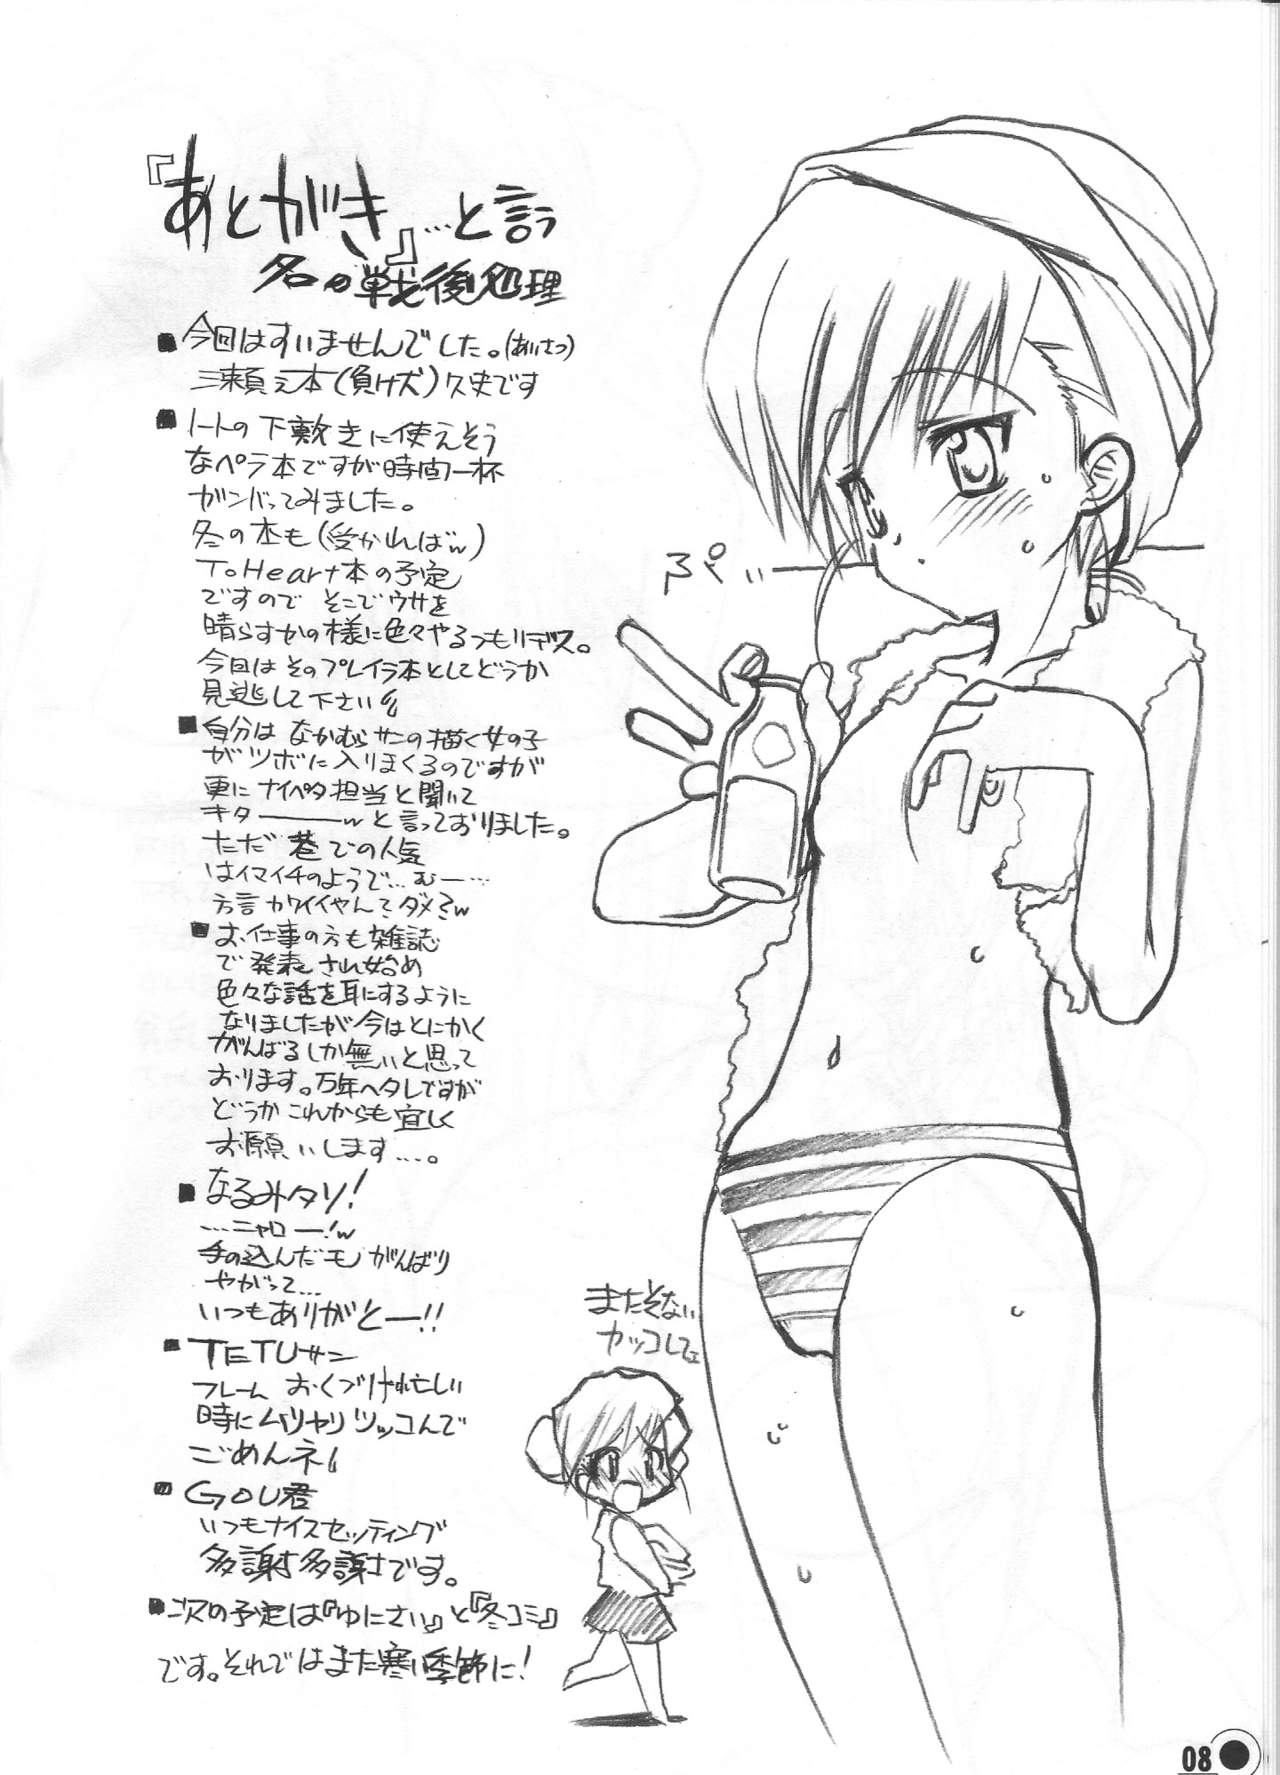 『あとがき』…と言う
名の戦後処理
■今回はすいませんでした。(あいさつ)
三瀬元本(負け犬)久史です
■ノートの下敷きに使えそう
なペラ本ですが時間一杯
ガンバってみました。
冬の本も(受かればw)
ToHeart本の予定
ですので そこでウサを
晴らすかの様に色々やるつもりデス。
今日はそのプレイラ本としてどうか
見逃して下さい
■自分は なかむらサンの描く女の子
がツボに入りまくるのですが
更に ナイペタ担当と聞いて
キター―――w と言っておりました。
ただ 巷での人気
はイマイチのようで…むー…
方言 カワイイやん?ダメ?w
■お仕事の方も雑誌
で発表され始め
色々な話を耳にするように
なりましたが今はとにかく
がんばるしか無いと思って
おります。万年ヘタレですが
どうか これからも宜しく
お願いします…。
■なるみタソ!
…ニャロー!w
手の込んだモノ がんばり
やがって…
いつもありがとー!!
■TETUサン
フレーム おくづけ忙しい
時にムリヤリツッコんで
ごめんネ
■GOU君
いつもナイスセッティング
多謝多謝です。
■次の予定は『ゆにさい』と『冬コミ』
です。それではまた寒い季節に!
ぷぃ
またそない
カッコしてェ
08